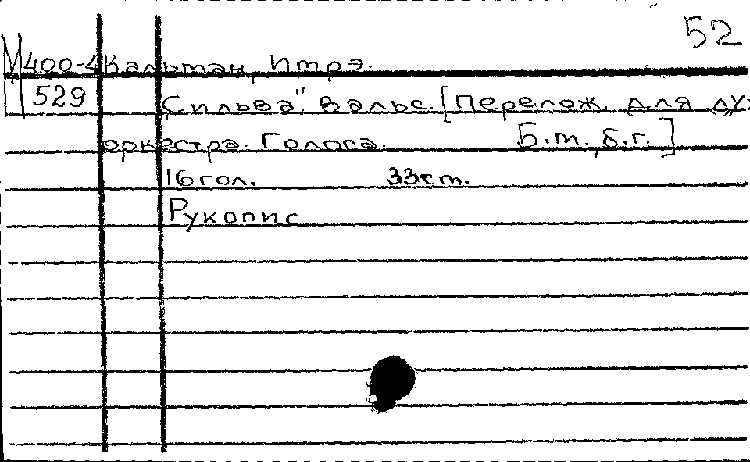 52
М400-4 Кальман, Имрэ.
529 "Сильва". Вальс. [Перелож. для дух.
оркестра. Голоса. Б.т., б.г.]
16 гол. 33 ст.
Рукопис